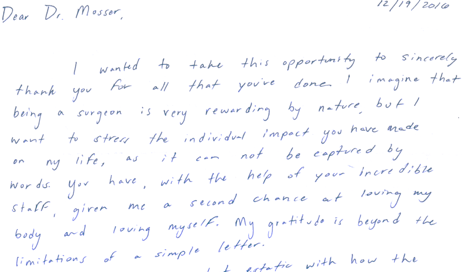 12/19/2016
Dear Dr. Mosser,
I wanted to take this opportunity to sincerely
thank you for all that you've done. I imagine that
being a surgeon is very rewarding by nature, but I
want to stress the individual impact you have made
on my life, as it can not be captured by
words. You have, with the help of your incredible
staff, given me a second chance at loving my
body and loving myself. My gratitude is beyond the
limitations of a simple letter.
estatic with how the